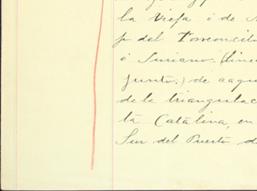 la Vieja ó de
p del Torreoncill
ó Suriano. (linea
junto.) de aqui
de la triangulac
ta Catalina, en
Sur del Puerto, d